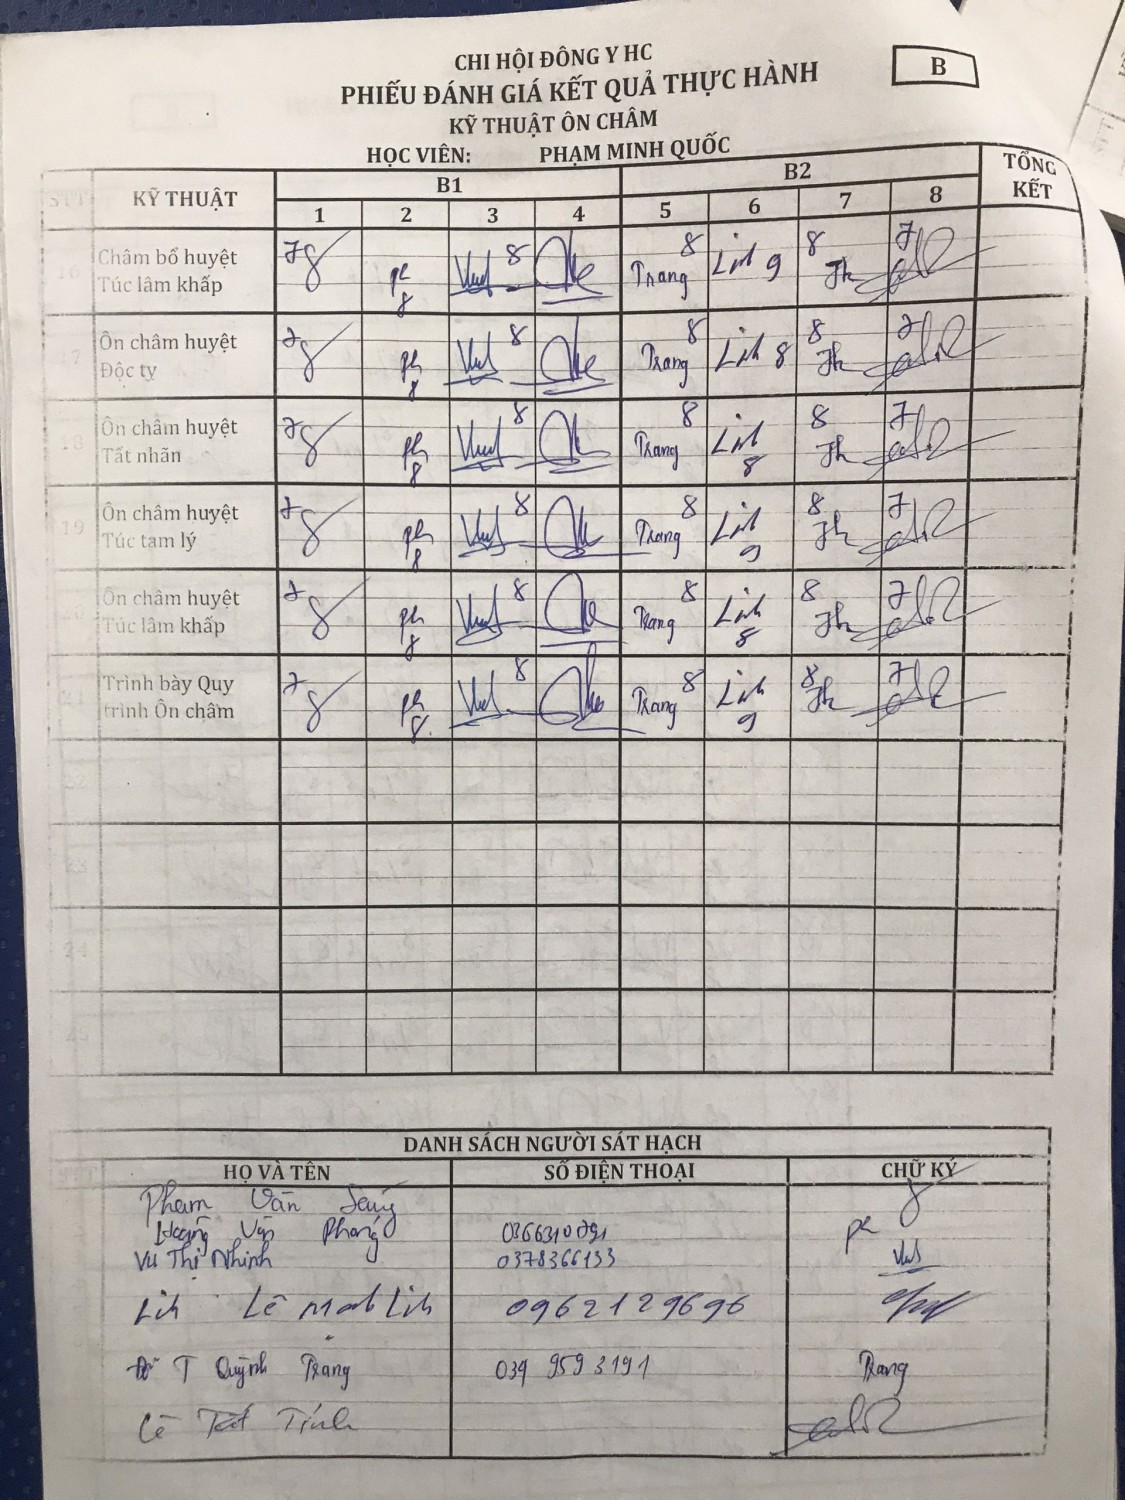 CHI HỘI ĐÔNG Y HC
B
PHIẾU ĐÁNH GIÁ KẾT QUẢ THỰC HÀNH
KỸ THUẬT ÔN CHÂM
HỌC VIÊN: PHẠM MINH QUỐC
STT KỸ THUẬT B1 B2 TỔNG KẾT
1 2 3 4 5 6 7 8
16 Châm bổ huyệt Túc lâm khấp 7 8 8 8 Trang Linh 9 8 Th 7
17 Ôn châm huyệt Độc tỵ 7 ph 8 8 8 Trang Linh 8 8 Th 7
18 Ôn châm huyệt Tất nhãn 7 ph 8 8 8 Trang Linh 8 8 Th 7
19 Ôn châm huyệt Túc tam lý 7 ph 8 8 8 Trang Linh 9 8 Th 7
20 Ôn châm huyệt Túc lâm khấp 7 ph 8 8 8 Trang Linh 8 8 Th 7
21 Trình bày Quy trình Ôn châm 7 ph 8 8 8 Trang Linh 9 8 Th 7
22
23
24
25
DANH SÁCH NGƯỜI SÁT HẠCH
HỌ VÀ TÊN SỐ ĐIỆN THOẠI CHỮ KÝ
Phạm Văn
Hoàng Văn Phong 0366310791
Vũ Thị Nhinh 0378366133
Linh Lê Linh 0962129696
Đỗ T Quỳnh Trang 039 959 3191 Trang
Lê Tất Tính